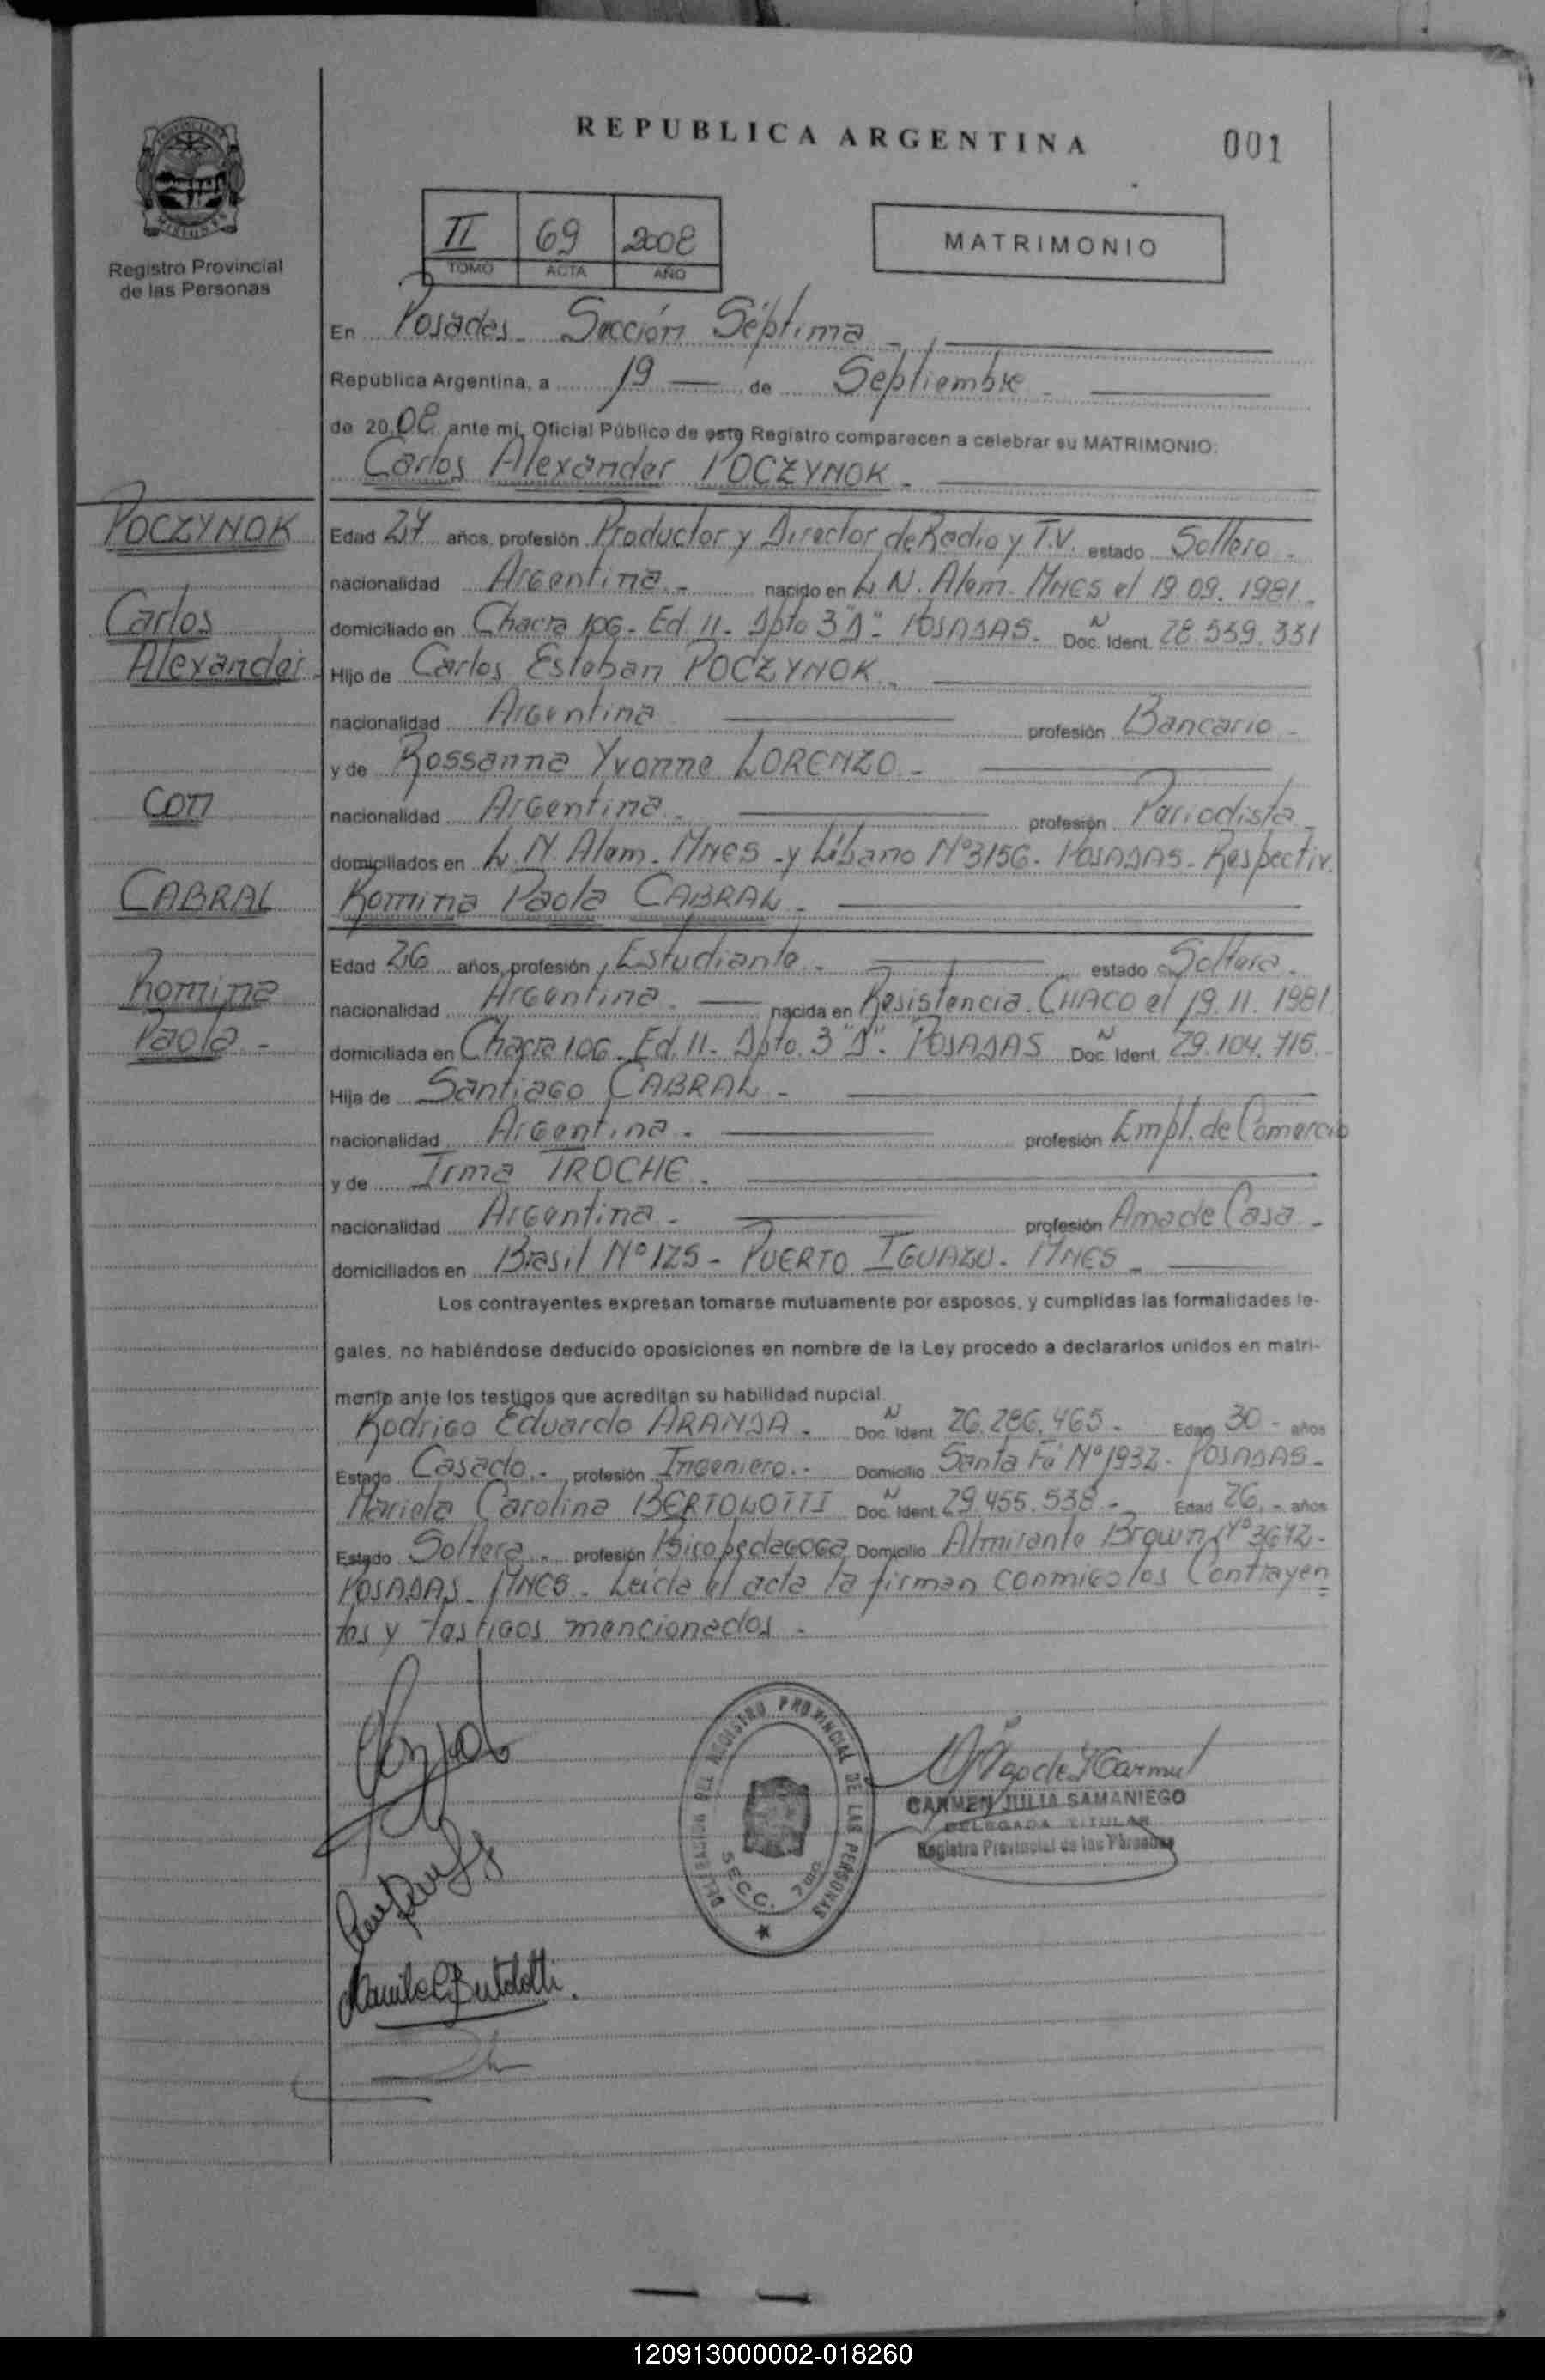 REPUBLICA ARGENTINA
001
Registro Provincial
de las Personas
II 69 2008
TOMO ACTA AÑO
MATRIMONIO
En Posadas Sección Séptima
Republica Argentina, a 19 de Septiembre
de 2008 ante mi, Oficial Público de este Registro comparecen a celebrar su MATRIMONIO:
Carlos Alexander POCZYNOK
POCZYNOK
Carlos
Alexander
con
CABRAL
Romina
Paola
Edad 27 años, profesión Productor y Director de Radio y T.V. estado Soltero
nacionalidad Argentina nacido en L.N. Alem. MNES el 19.09.1981
domiciliado en Chacra 106 - Ed. 11 - Dpto 3 "D" - POSADAS - Doc. Ident. N 28.539.331
Hijo de Carlos Esteban POCZYNOK
nacionalidad Argentina profesión Bancario
y de Rossanna Yvonne LORENZO
nacionalidad Argentina profesión Periodista
domiciliados en L.N. Alem - MNES - y Líbano Nº 3156 - POSADAS - Respectiv.
Romina Paola CABRAL
Edad 26 años, profesión Estudiante estado Soltera
nacionalidad Argentina nacida en Resistencia. CHACO el 19.11.1981
domiciliada en Chacra 106 - Ed. 11 - Dpto. 3 "D" - POSADAS Doc. Ident. N 29.104.715
Hija de Santiago CABRAL
nacionalidad Argentina profesión Empl. de Comercio
y de Irma TROCHE
nacionalidad Argentina profesión Ama de Casa
domiciliados en Brasil Nº 125 - PUERTO IGUAZU - MNES
Los contrayentes expresan tomarse mutuamente por esposos, y cumplidas las formalidades le-
gales, no habiéndose deducido oposiciones en nombre de la Ley procedo a declararlos unidos en matri-
monio ante los testigos que acreditan su habilidad nupcial.
Rodrigo Eduardo ARANDA - Doc. Ident. N 26.286.465 - Edad 30 - años
Estado Casado - profesión Ingeniero - Domicilio Santa Fé Nº 1932 - POSADAS -
Mariela Carolina BERTOLOTTI Doc. Ident. N 29.455.538 - Edad 26 - años
Estado Soltera - profesión Psicopedagoga Domicilio Almirante Brown Nº 3672 -
POSADAS - MNES - Leída el acta la firman conmigo los Contrayen
tes y testigos mencionados -
DELEGACION DEL REGISTRO PROVINCIAL DE LAS PERSONAS
SECC. 7ma
CARMEN JULIA SAMANIEGO
DELEGADA TITULAR
Registro Provincial de las Personas
120913000002-018260